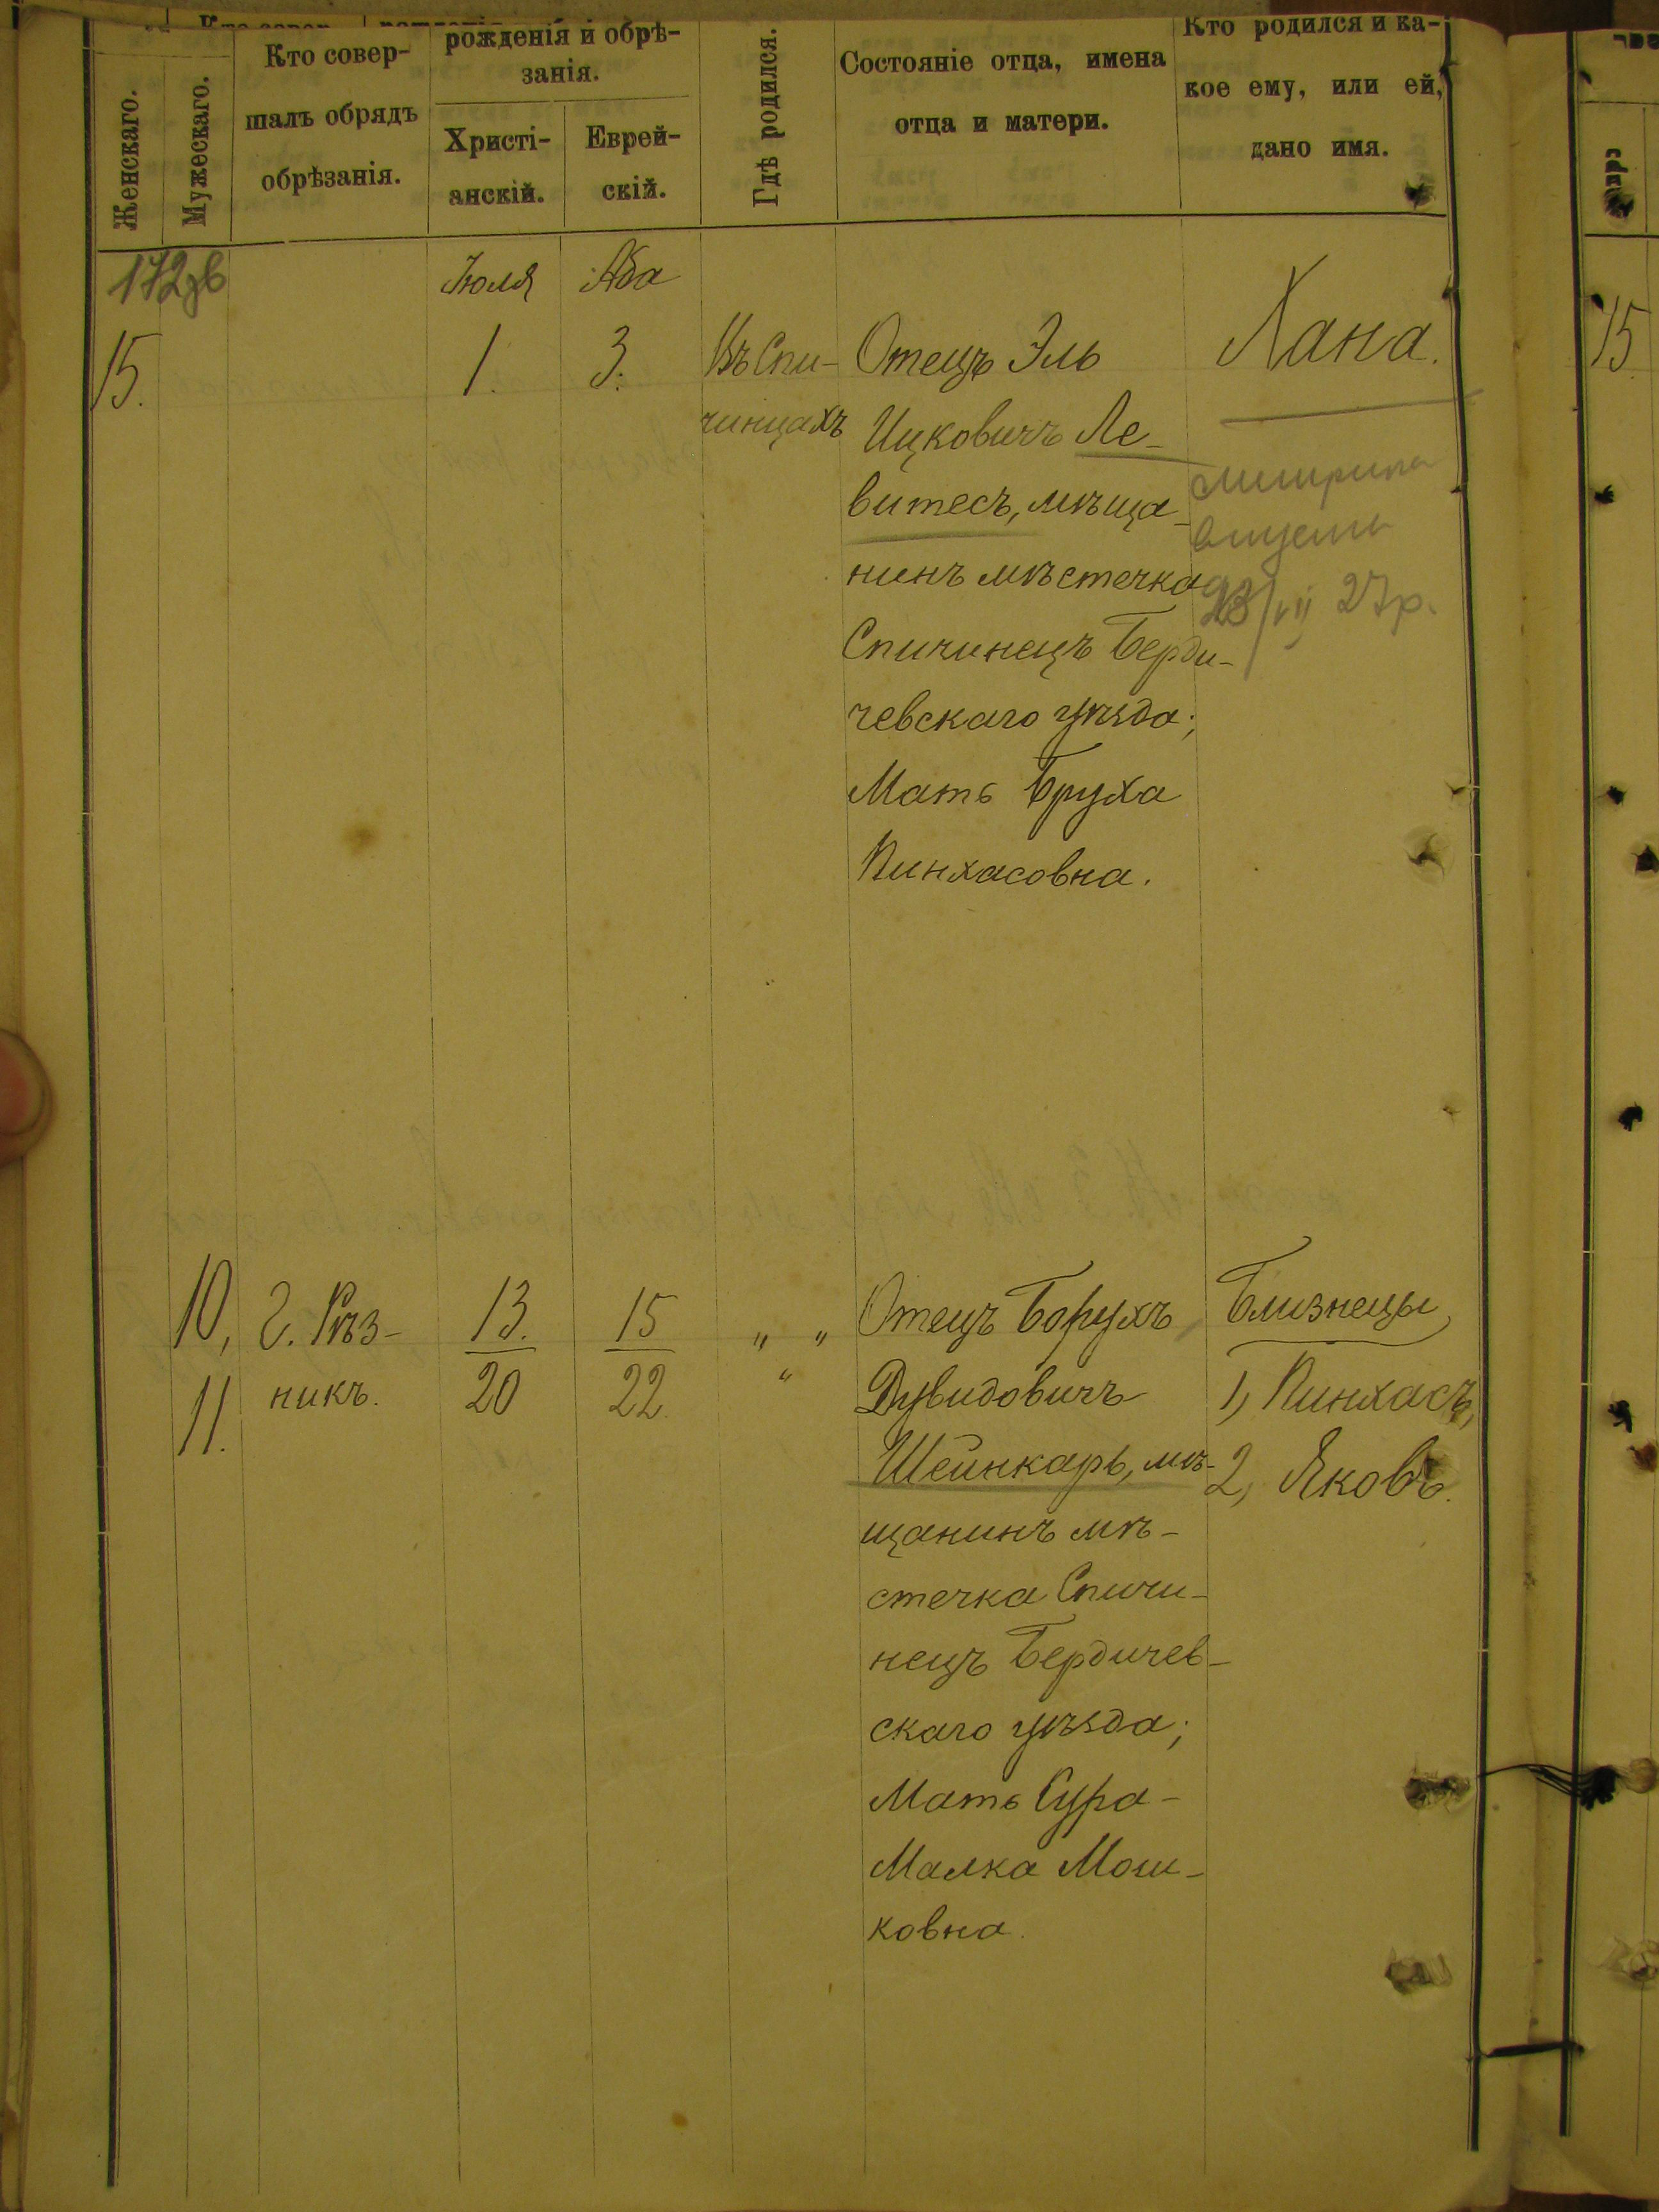 Женскаго.
Мужескаго.
Кто совер-
шалъ обрядъ
обрѣзанія.
рожденія и обрѣ-
занія.
Христі-
анскій.
Еврей-
скій.
Гдѣ родился.
Состояніе отца, имена
отца и матери.
Кто родился и ка-
кое ему, или ей,
дано имя.
172
Іюля
Аба
15.
1.
3.
Въ Спи-
чинцахъ
Отецъ Эль
Ицковичъ Ле-
витесъ, мѣща-
нинъ мѣстечка
Спичинецъ Берди-
чевскаго уѣзда;
Мать Бруха
Пинхасовна.
Хана.
27 р.
15
10,
11.
Г. Рѣз-
никъ.
13.
20
15
22.
" "
"
Отецъ Борухъ
Дувидовичъ
Шейнкарь, мѣ-
щанинъ мѣ-
стечка Спичи-
нецъ Бердичев-
скаго уѣзда;
Мать Сура-
Малка Мош-
ковна.
Близнецы
1, Пинхасъ,
2, Яковъ.